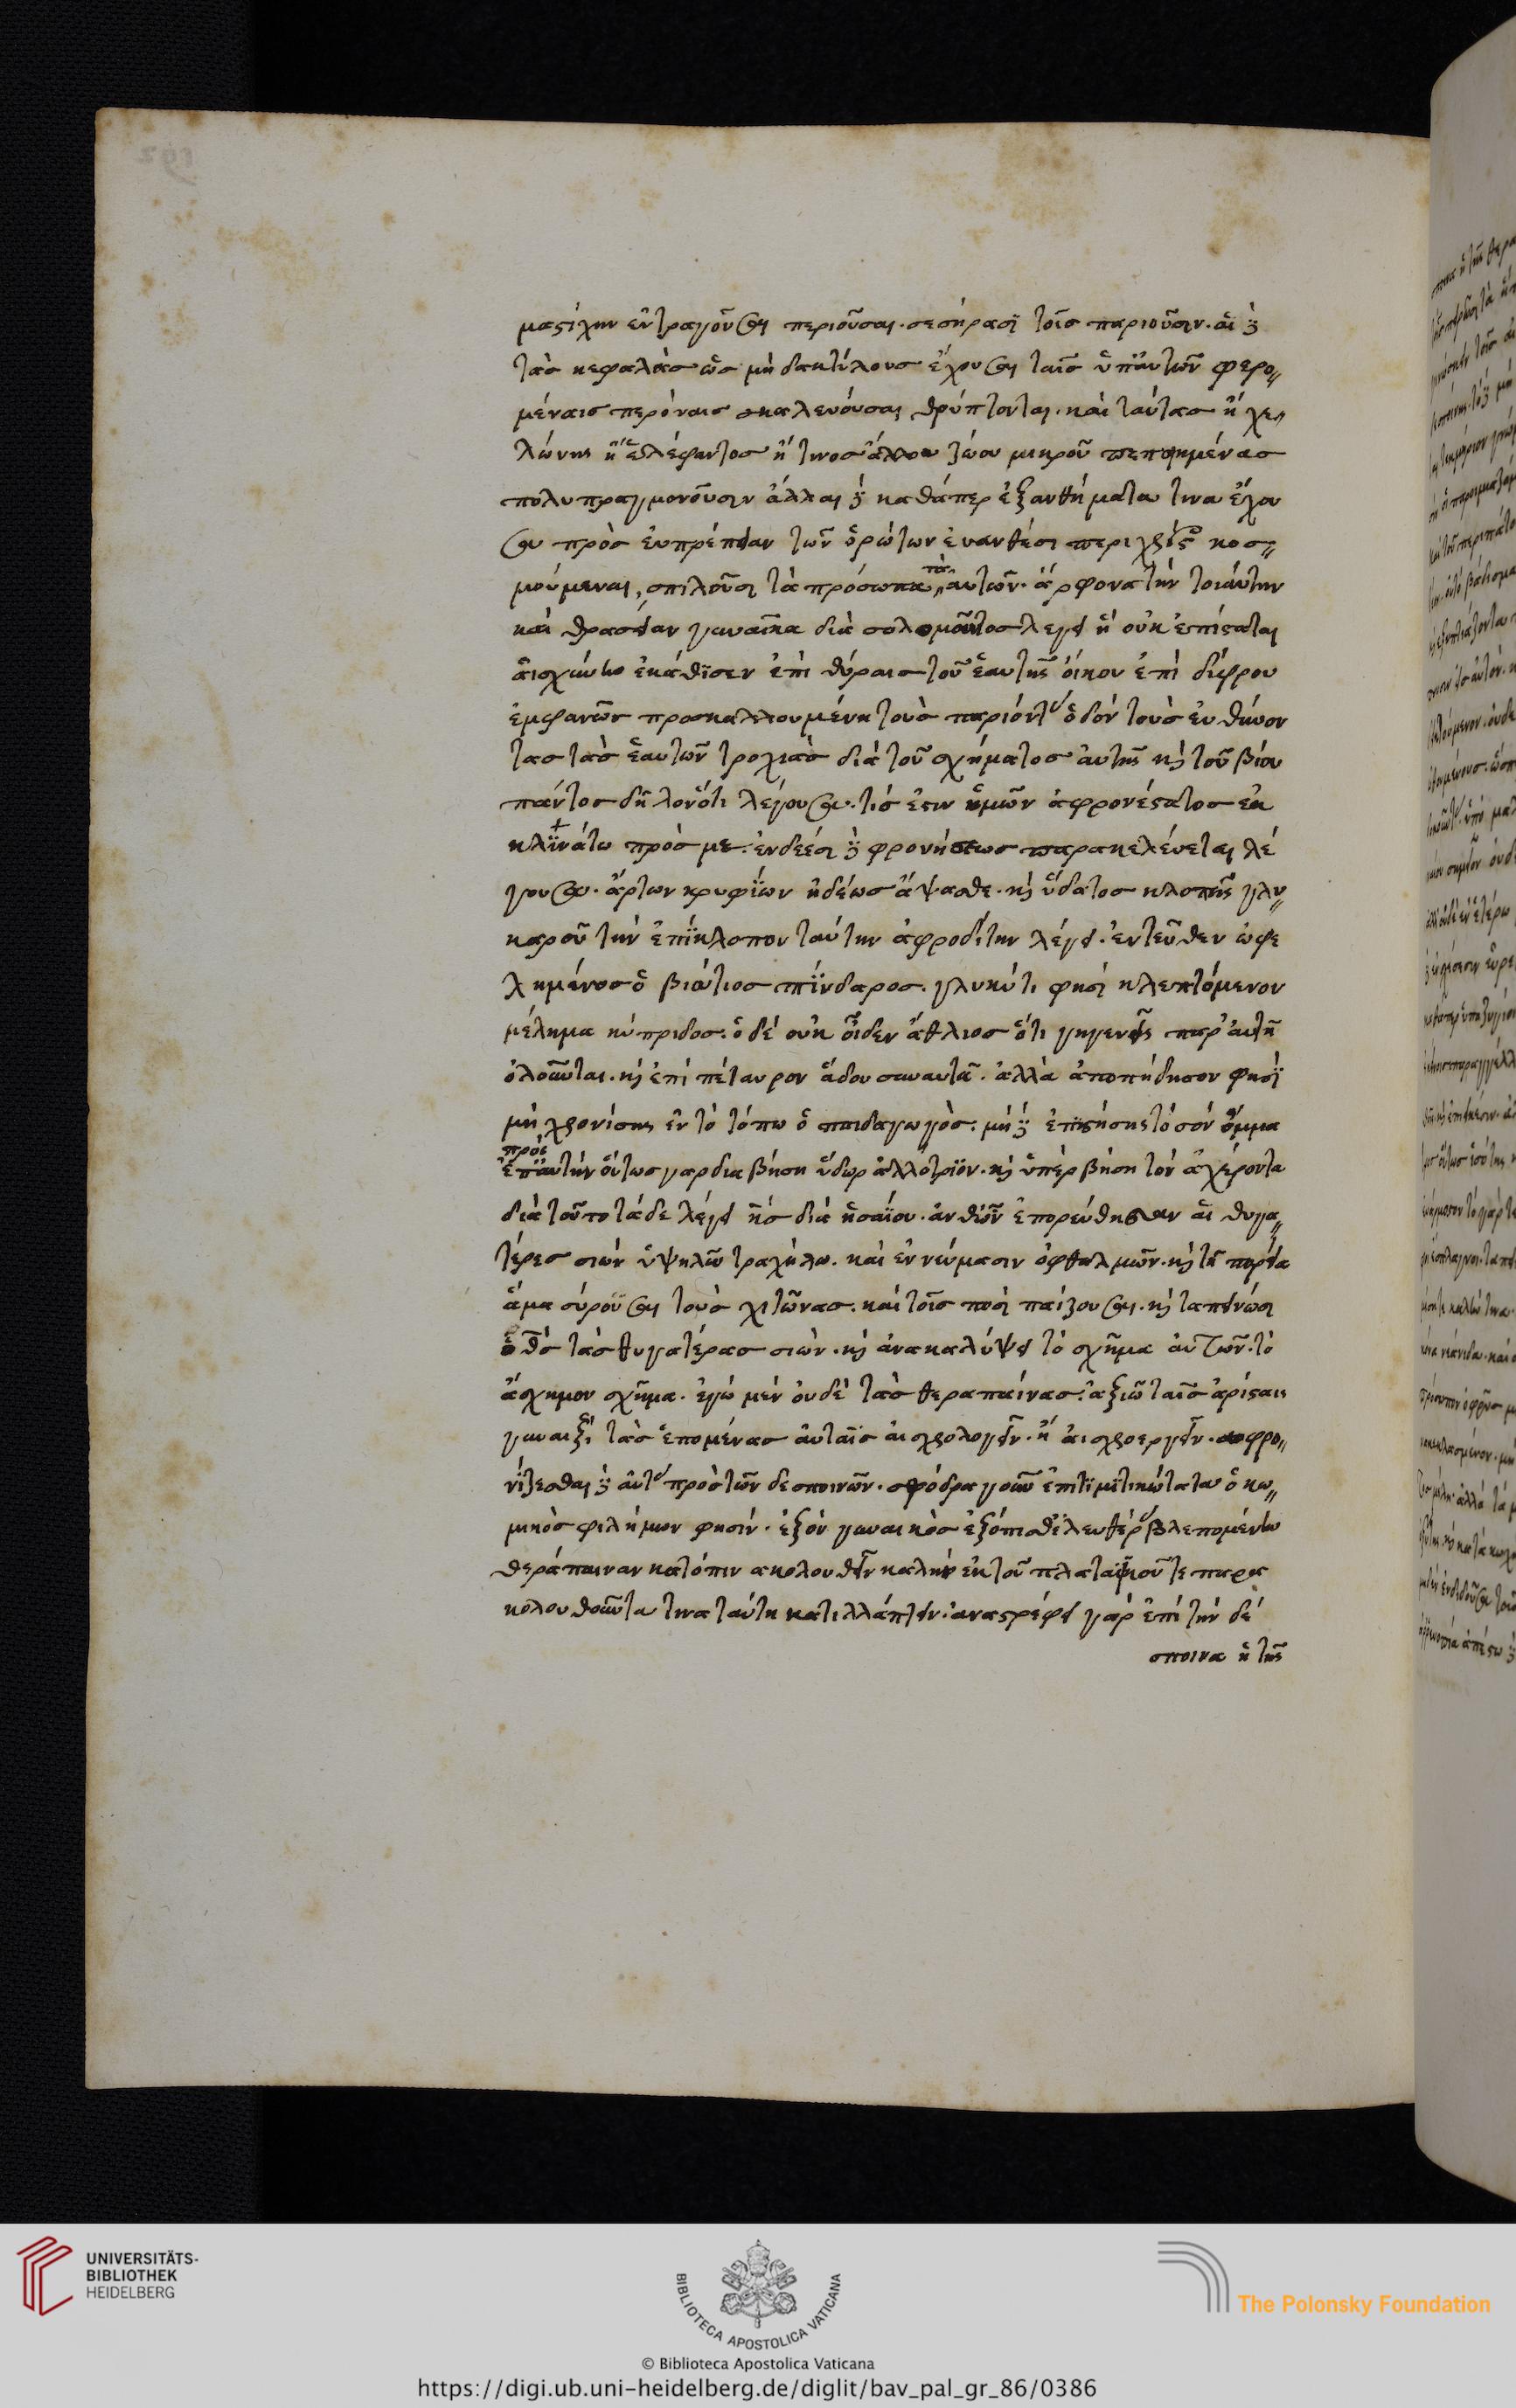 μαστίχην ἐντραγοῦσαι περιοῦσαι. σεσήρασϊ τοῖσ παριοῦσιν. αἳ δὲ
τὰσ κεφαλὰσ ὡσ μὴ δακτύλουσ ἔχουσαι ταῖσ ὑπ' αὐτῶν φερο„
μέναισ περόναισ σκαλευόυσαι θρύπτονται. καὶ ταύτασ ἢ χε„
λώνησ ἢ ἐλέφαντοσ ἤ τινοσ ἄλλου ζώου μικροῦ πεποιημένασ
πολυπραγμονοῦσιν ἄλλαι δὲ καθάπερ ἐξανθήματα τινα ἔχου
σαι πρὸσ ἐυπρέπειαν τῶν ὁρώτων ἐυανθέσι περιχρίστοις κοσ„
μούμεναι, σπιλοῦσι τὰ πρόσωπα τὰ αὑτῶν. ἄφρονα τὴν τοιάυτην
καὶ θρασεῖαν γυναῖκα διὰ σολομῶντοσ λεγει ἣ οὐκ ἐπίσταται
ἀισχύνην ἐκάθϊσεν ἐπὶ θύραισ τοῦ ἑαυτῆσ ὀίκου ἐπὶ δίφρου
ἐμφανῶσ προσκαλλουμένη τοὺσ παριόντας ὁδὸν τοὺσ ἐυθύνον
τασ τὰσ ἑαυτῶν τροχιὰσ διὰ τοῦ σχήματοσ ἀυτῆσ καὶ τοῦ βίου
παντοσ δῆλονότι λέγουσα. τίσ ἐστιν ὑμῶν ἀφρονέστατοσ ἐκ
κλϊνάτω πρόσ με. ἐνδεέσι δὲ φρονήσεωσ παρακελέυεται λέ
γουσα. ἄρτων κρυφΐων ἡδέωσ ἅψασθε. καὶ ὕδατοσ κλοπῆς γλυ„
καροῦ τὴν ἐπΐκλοπον ταύτην ἀφροδίτην λέγει. ἐντεῦθεν ὠφε
λημένοσ ὁ βιώτιοσ πΐνδαροσ. γλυκύτι φησὶ κλεπτόμενον
μέλημα κύπριδοσ. ὁ δὲ οὐκ οἶδεν ἄθλιοσ ὅτι γηγενεῖς παρ' ἀυτῇ
ὀλοῦνται. καὶ ἐπὶ πέταυρον ἅδου συναντᾶ. ἀλλὰ ἀποπήδησον φησϊ
μὴ χρονίσησ ἐν τὸ τόπω ὁ παιδαγωγὸσ. μὴ δὲ ἐπϊστήσησ τὸ σὸν ὄμμα
προσ
ἐπ' ἀυτὴν οὕτωσ γαρ διαβήση ὕδωρ ἀλλότρϊον. καὶ ὑπὲρβήση τὸν ἀχέροντα
διὰ τοῦτο τάδε λέγει κσ διὰ ἡσαΐου. ἀνθ' ὧν ἐπορεύθησαν αἱ θυγα„
τέρεσ σιών ὑψηλῶ τραχήλω. καὶ ἐν νεύμασιν ὀφθαλμῶν. καὶ τῆ πορεία
ἅμα σύροϋσαι τοὺσ χιτῶνασ. καὶ τοῖσ ποσὶ παίζουσαι. καὶ ταπεινώσι
ὁ θσ τὰσ θυγατέρασ σιὼν. καὶ ἀνακαλύψει τὸ σχῆμα ἀυτῶν. τὸ
ἄσχημον σχῆμα. ἐγὼ μὲν ὀυδὲ τὰσ θεραπαίνασ. ἀξιῶ ταῖσ ἀρίσταισ
γυναιξὶ τὰσ ἑπομένασ ἀυταῖσ ἀισχρολογεῖν. ἢ ἀισχροεργεῖν. σωφρο„
νΐζεσθαι δὲ ἀυτὰς πρὸσ τῶν δεσποινῶν. σφόδρα γοῦν ἐπιτϊμϊτικώτατα ὁ κω„
μικὸσ φιλήμων φησίν. ἐξὸν γυναικὸσ ἐξόπισθ' ἐλευθέρας βλεπομένην
θεράπαιναν κατόπιν ακολουθεῖν καλὴν ἐκ τοῦ πλαταϊκοῦ τε παρα
κολουθοῦντα τινα ταύτη κατιλλάπτειν. ἀναστρέφει γὰρ ἐπὶ τὴν δὲ
σποινα ἡ τῆσ